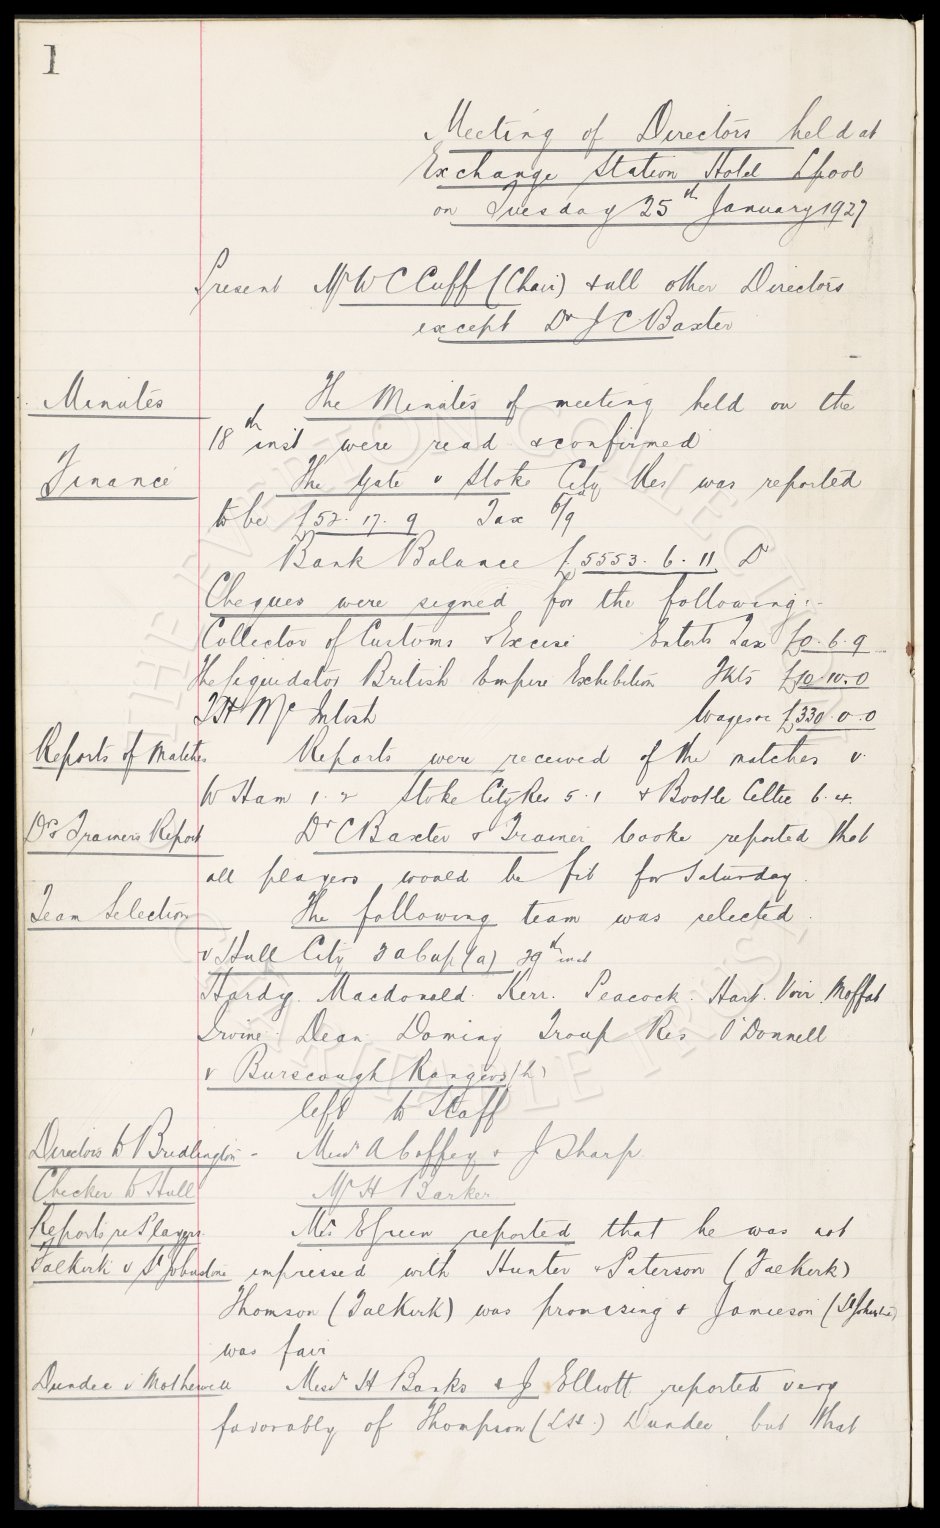 1
Meeting of Directors held at
Exchange Station Hotel Lpool
on Tuesday 25th January 1927
Present Mr W C Cuff (Chair) & all other Directors
except Dr J C Baxter
Minutes The Minutes of meeting held on the
18th inst were read & confirmed
Finance The Gate v Stoke City Res was reported
to be £52.17.9 Tax 6/9
Bank Balance £5553.6.11 Dr
Cheques were signed for the following:-
Collector of Customs & Excise Enterts Tax £0.6.9
The Liquidator British Empire Exhibition Tkts £10.10.0
T H McIntosh Wages &c £330.0.0
Reports of Matches Reports were received of the matches v
W Ham 1.2 Stoke City Res 5.1 & Bootle Celtic 6.4.
Drs & Trainers Report Dr C Baxter & Trainer Cooke reported that
all players would be fit for Saturday.
Team Selection The following team was selected.
v Hull City Cup (a) 29th inst
Hardy. Macdonald. Kerr. Peacock. Hart. Virr. Moffat
Irvine. Dean. Doming Troup Res O'Donnell
v Burscough Rangers (h)
left to Staff
Directors to Bridlington - Messrs A Coffey & J Sharp.
Checker to Hull Mr H Barker
Reports re Players Mr E Green reported that he was not
Falkirk v St Johnstone impressed with Hunter & Paterson (Falkirk)
Thomson (Falkirk) was promising & Jamieson (St Johnstne)
was fair
Dundee v Motherwell Messrs H Banks & J Elliott reported very
favorably of Thompson (LH.) Dundee, but that
THE EVERTON COLLECTION
CHARITABLE TRUST